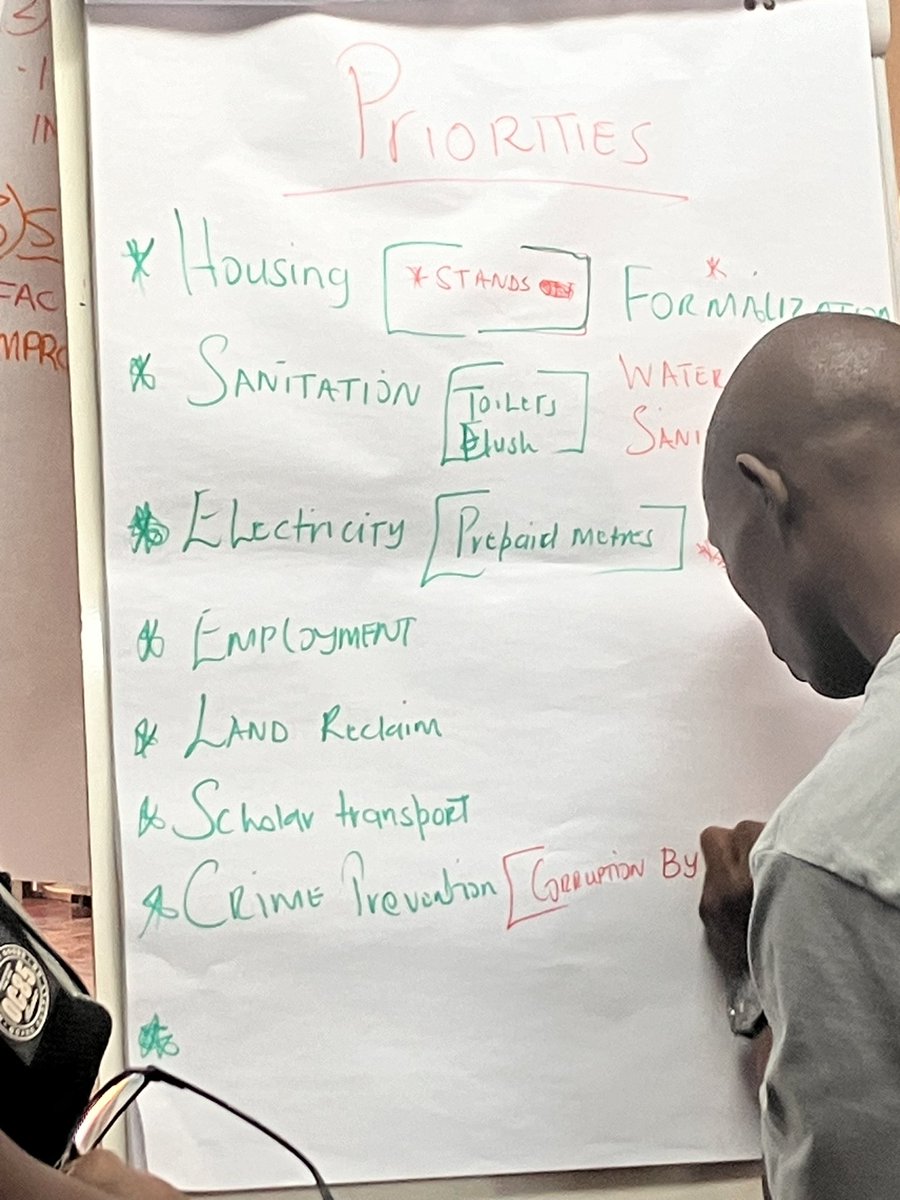 PRIORITIES
* Housing [* STANDS] FORMALIZATION
* SANITATION [Toilets Flush] WATER
SANI
* Electricity [Prepaid metres]
* EMPLOYMENT
* LAND Reclaim
* Scholar transport
* CRIME Prevention [CORRUPTION By
*
FAC
MPRO